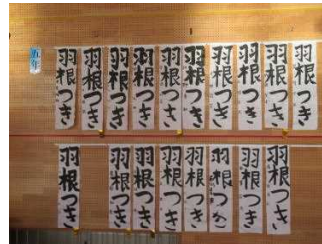 五年
羽根つき
羽根つき
羽根つき
羽根つき
羽根つき
羽根つき
羽根つき
羽根つき
羽根つき
羽根つき
羽根つき
羽根つき
羽根つき
羽根つき
羽根つき
羽根つき
羽根つき
羽根つき